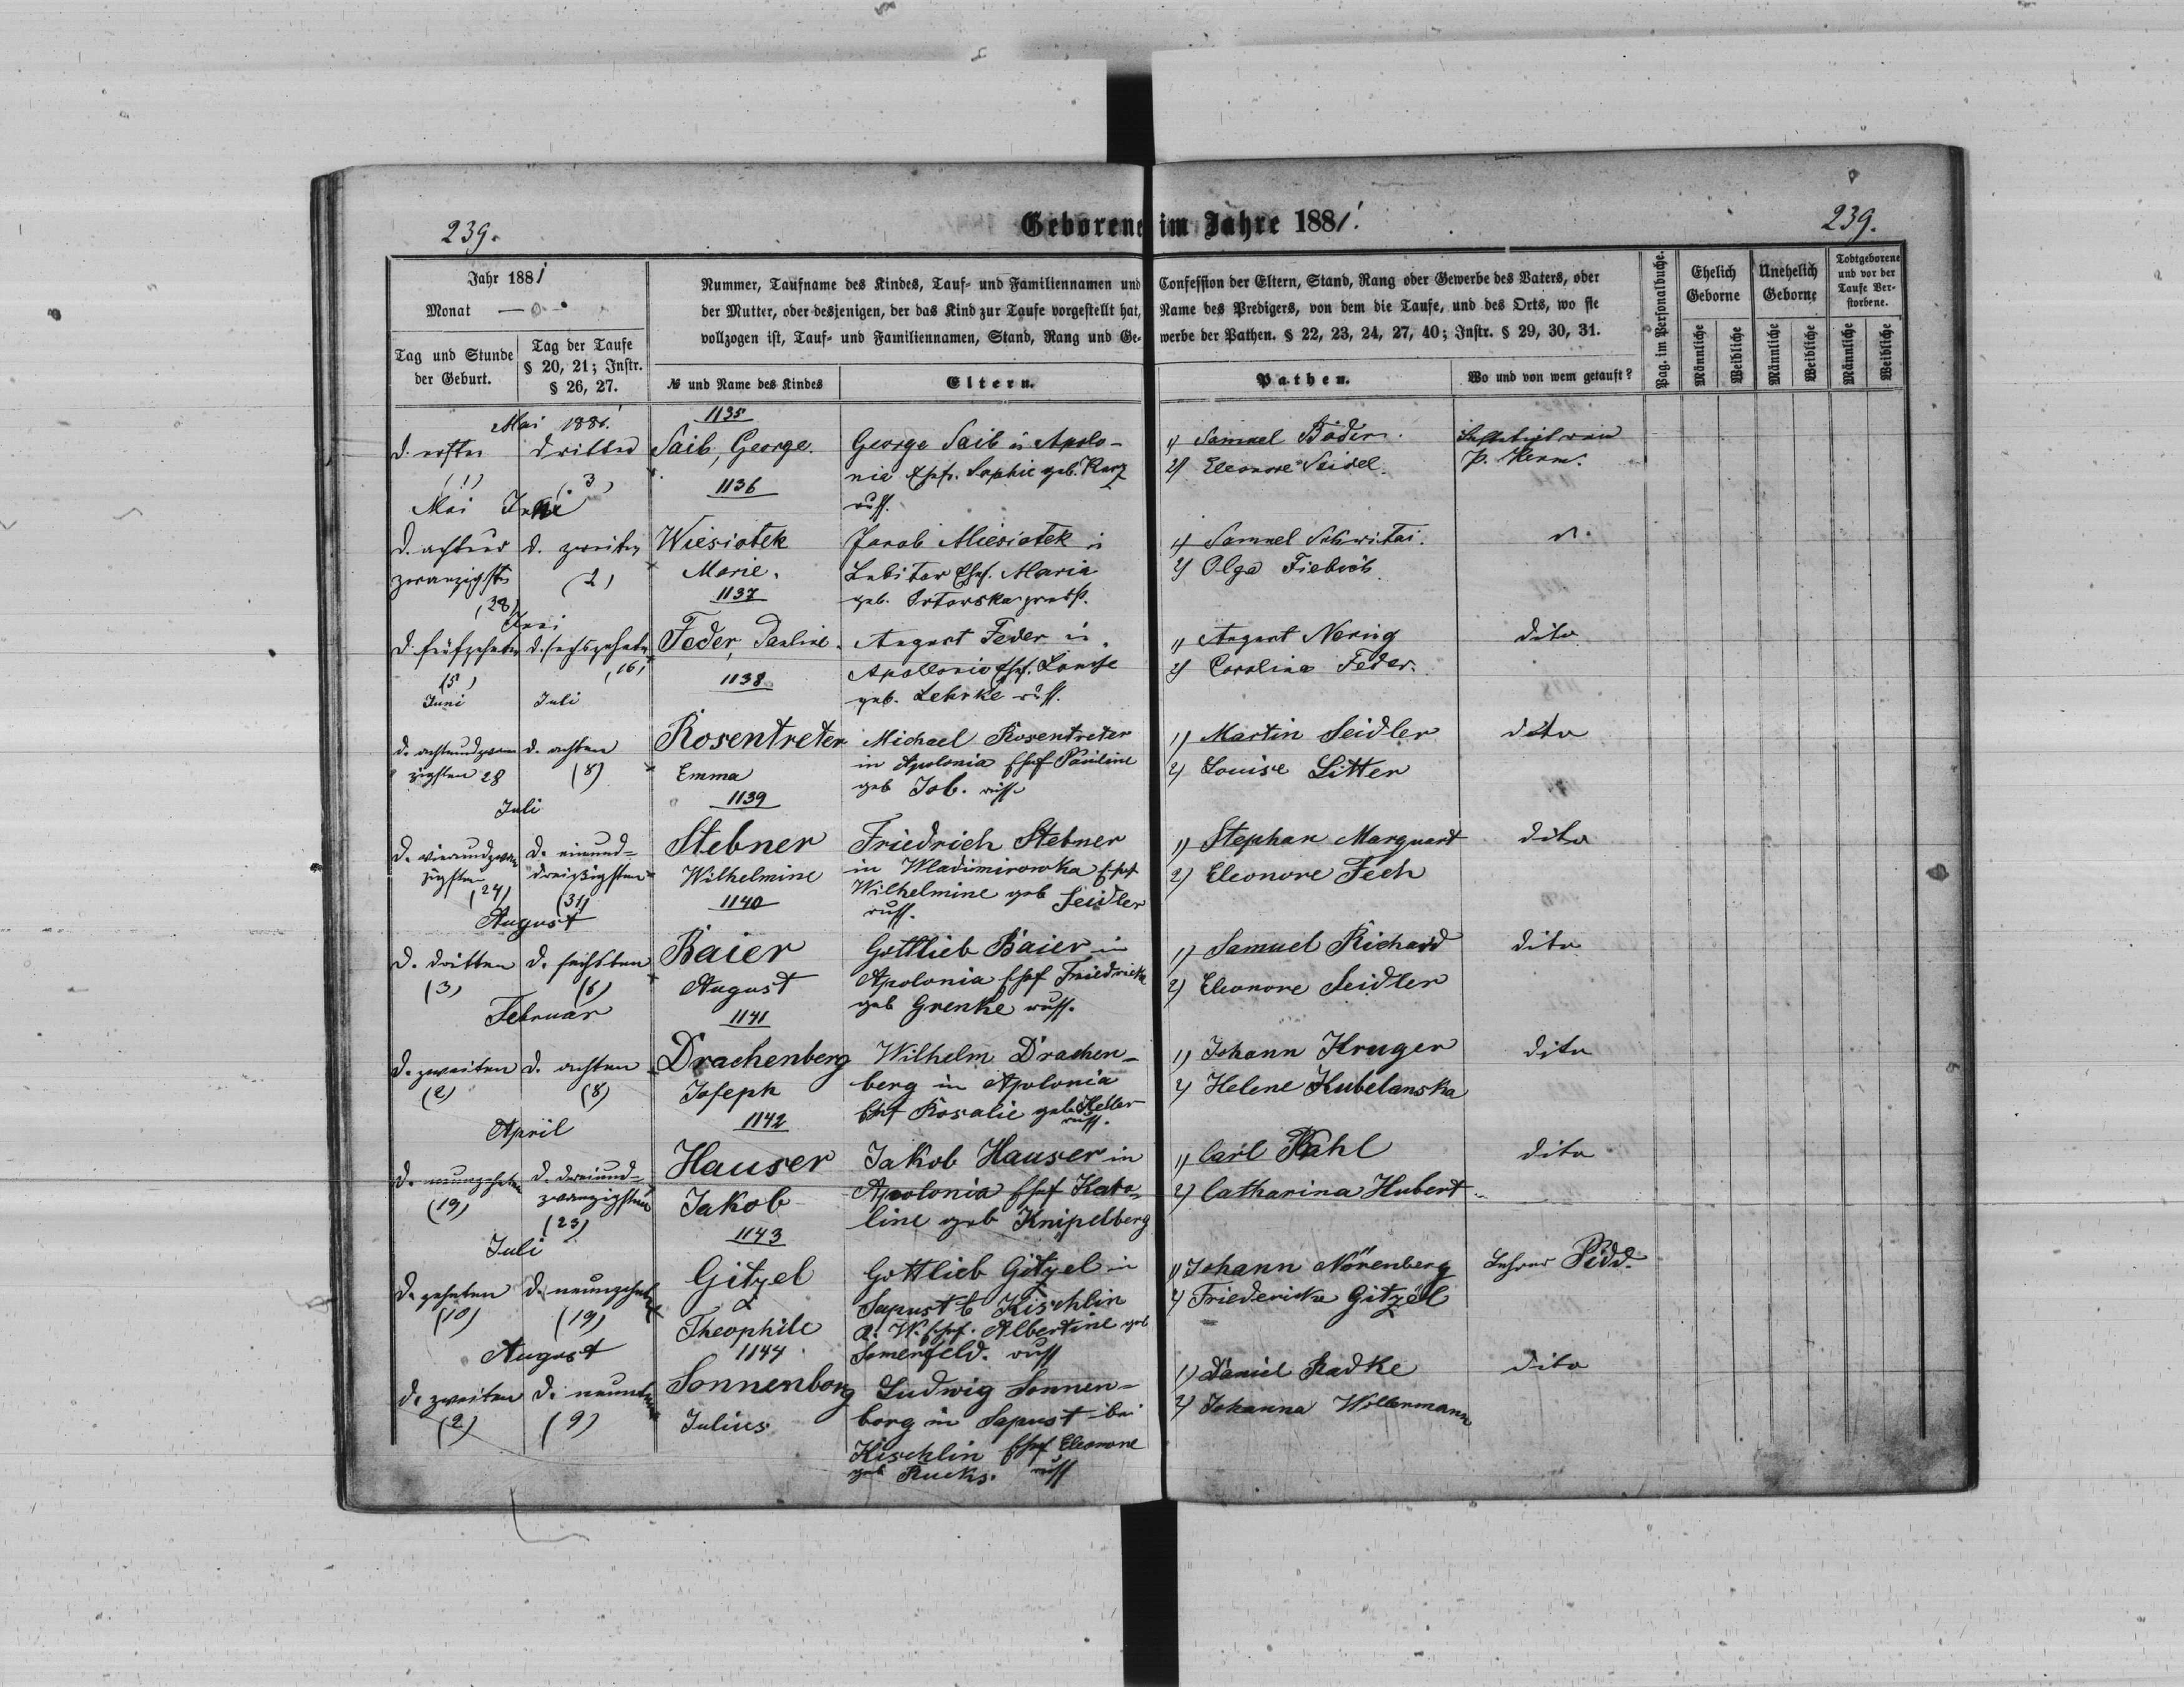 239.
Geborene im Jahre 1881.
239.
Jahr 1881
Monat
Tag und Stunde
der Geburt.
Tag der Taufe
§ 20, 21; Instr.
§ 26, 27.
Nummer, Taufname des Kindes, Tauf- und Familiennamen und
der Mutter, oder desjenigen, der das Kind zur Taufe vorgestellt hat,
vollzogen ist, Tauf- und Familiennamen, Stand, Rang und Ge-
№ und Name des Kindes
Eltern.
Confession der Eltern, Stand, Rang oder Gewerbe des Vaters, oder
Name des Predigers, von dem die Taufe, und des Orts, wo sie
werbe der Pathen. § 22, 23, 24, 27, 40; Instr. § 29, 30, 31.
Pathen.
Wo und von wem getauft?
Pag. im Personalbuche.
Ehelich
Geborne
Unehelich
Geborne
Todtgeborene
und vor der
Taufe Ver-
storbene.
Männliche
Weibliche
Männliche
Weibliche
Männliche
Weibliche
Mai 1881.
1135
d. ersten
(1)
dritten
(3)
Saib, George.
George Saib in Apolo-
nia Ehefr. Sophie geb.
russ.
1) Samuel Bäder.
2) Eleonore Seidel.
P. Kerm.
Mai Juni
1136
d. achtund
zwanzigsten
(28)
d. zweiten
(2)
Wiesiotek
Marie.
Jacob Miesiatek in
Ehef. Maria
geb.
1) Samuel Schwitai.
2) Olga Fiebich
d.
Juni
1137
d. fünfzehnten
15)
d. sechszehnten
16)
Feder, Pauline.
August Feder in
Apollonia Ehef. Louise
geb. Lehrke russ.
1) August Nering
2) Carolina Feder.
dito
Juni
Juli
1138
d. achtundzwan
zigsten 28
d. achten
(8)
Rosentreter
Emma
Michael Rosentreter
in Apolonia Ehef Pauline
geb Job. russ
1) Martin Seidler
2) Louise Litter
dito
Juli
1139
d. vierundzwan
zigsten
(24)
d. einund-
dreißigsten
(31)
Stebner
Wilhelmine
Friedrich Stebner
in Wladimirowka Ehef
Wilhelmine geb Seidler
russ.
1) Stephan Marquart
2) Eleonore Fech
dito
August
1140
d. dritten
(3)
d. sechsten
(6)
Baier
August
Gottlieb Baier in
Apolonia Ehef Friedricke
geb Grenke russ.
1) Samuel Richard
2) Eleonore Seidler
dito
Februar
1141
d. zweiten
(2)
d. achten
(8)
Drachenberg
Joseph
Wilhelm Drachen-
berg in Apolonia
Ehef Rosalie geb Heller
russ.
1) Johann Kruger
2) Helene Kubelanska
dito
April
1142
d. neunzehnten
(19)
d. dreiund-
zwanzigsten
(23)
Hauser
Jakob
Jakob Hauser in
Apolonia Ehef Karo-
line geb Knipelberg
1) Carl Kahl
2) Catharina Hubert
dito
Juli
1143
d. zehnten
(10)
d. neunzehnten
(19)
Gitzel
Theophile
Gottlieb Gitzel in
Sapust b Kischlin
a. W. Ehef. Albertine geb
Somerfeld. russ
1) Johann Nörenberg
2) Friedericke Gitzel
Lehrer Pidd.
August
1144
d. zweiten
(2)
d. neunten
(9)
Sonnenborg
Julius
Ludwig Sonnen-
borg in Sapust bei
Kischlin Ehef Eleonore
geb Rucks. russ
1) Daniel Radke
2) Johanna Wollermann
dito